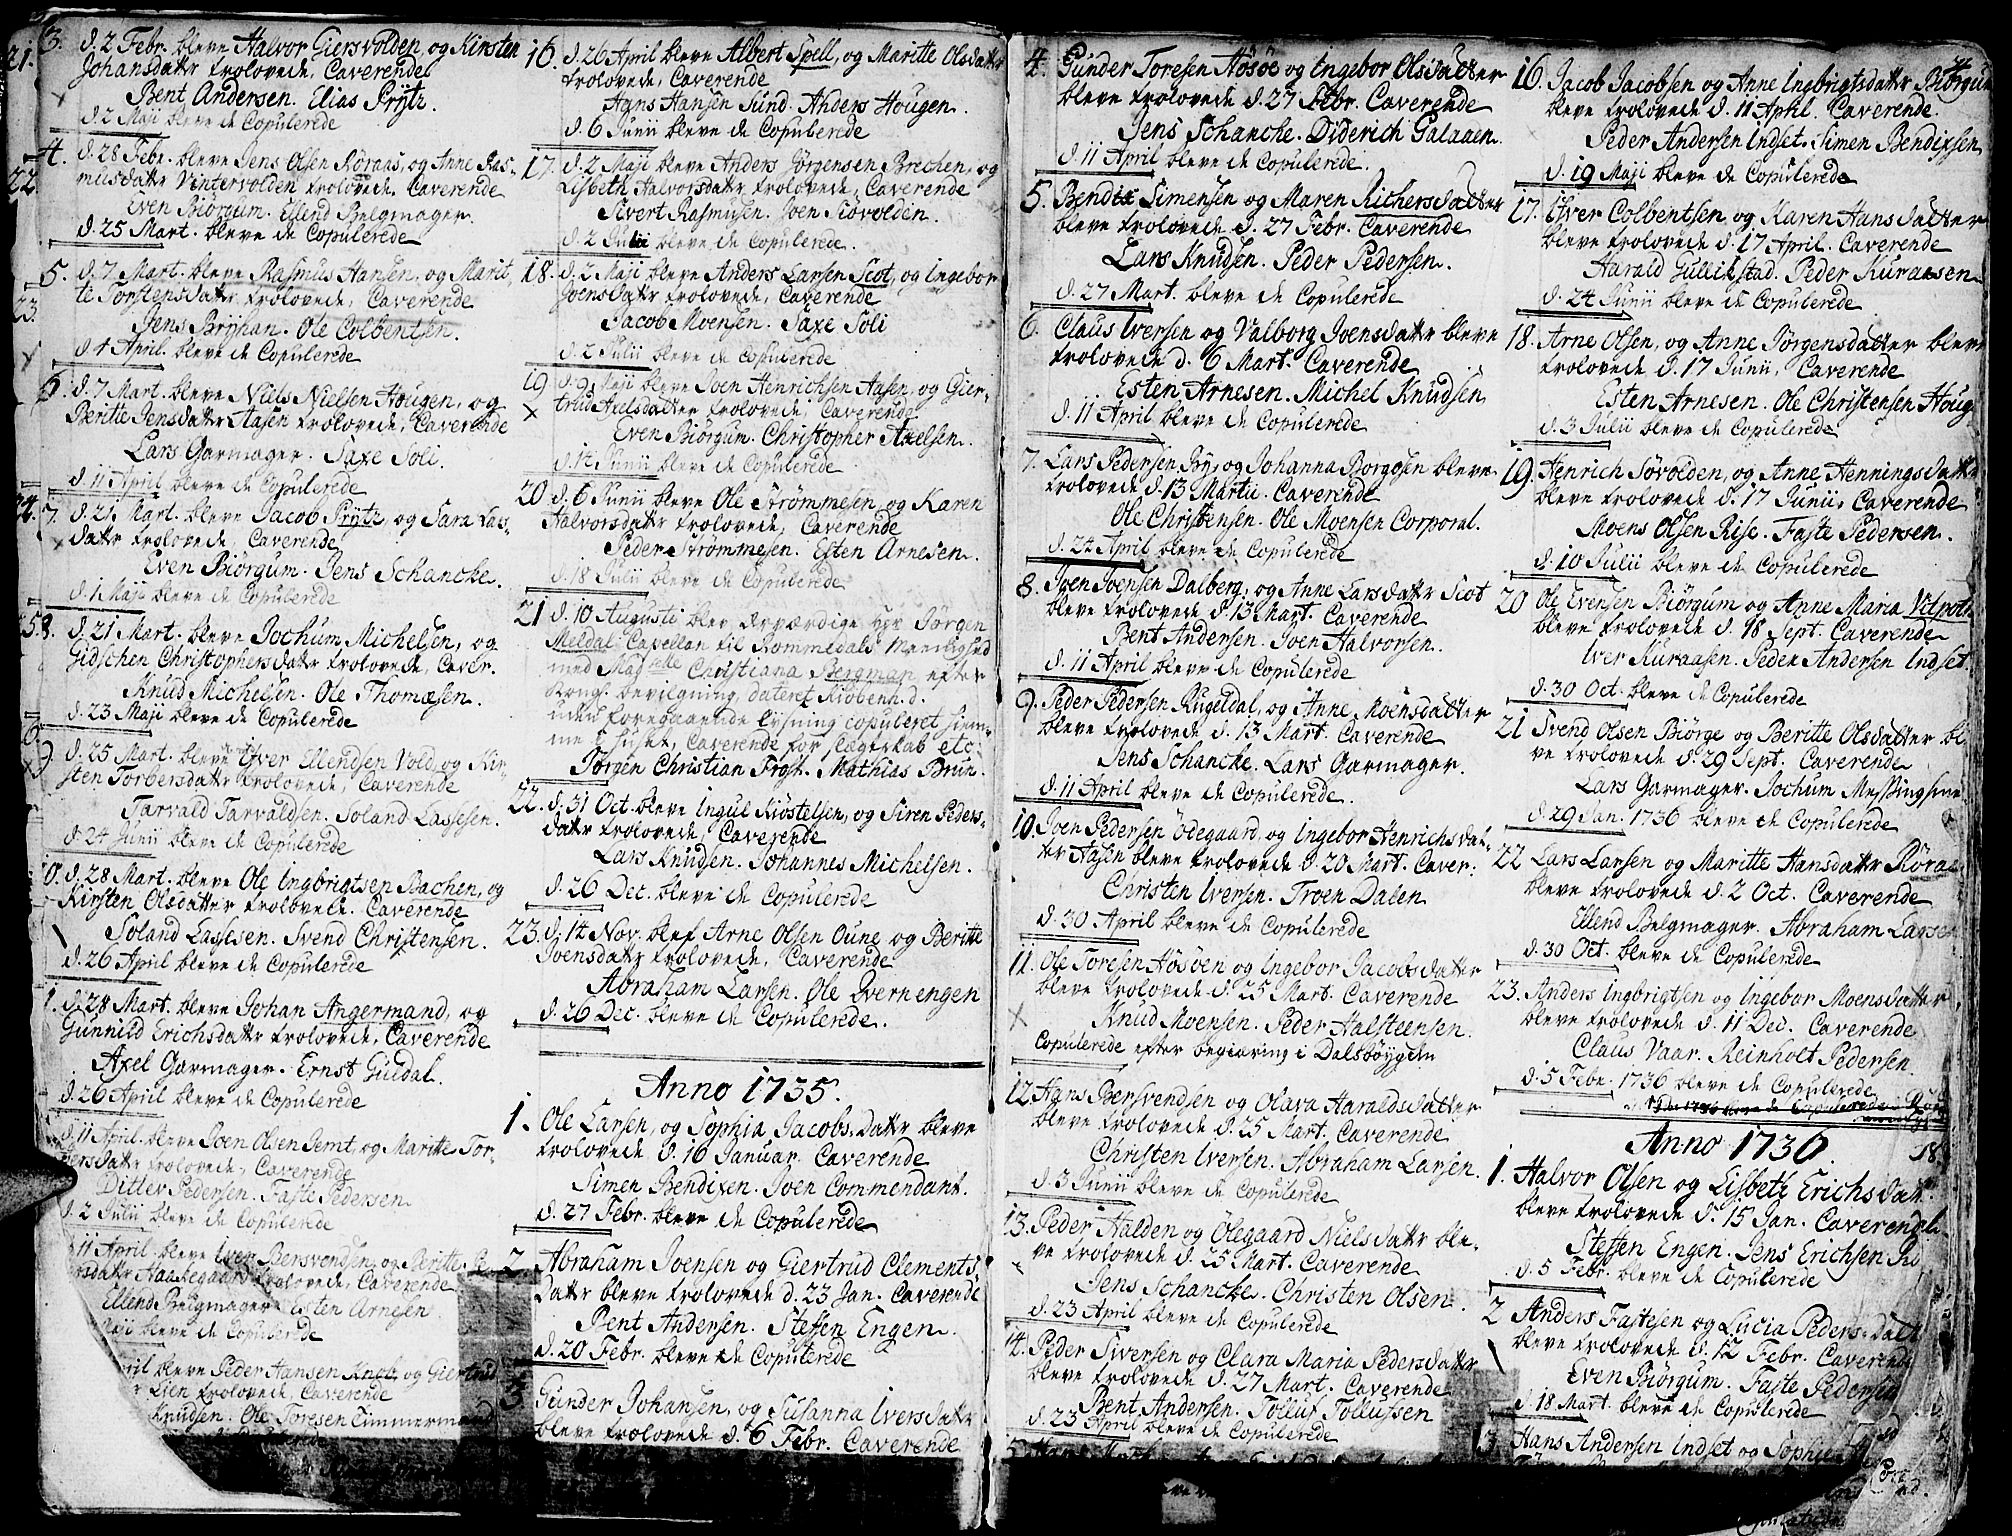 3. d. 2 Febr. bleve Halvor Giersvolden, og Kirsten
Johansdattr trolovede, Caverende
Bent Andersen. Elias Prÿtz.
d. 2 Maji bleve de Copulerede
4. d. 28 Febr. bleve Jens Olsen Röraas, og Anne Ras-
musdattr Vintervolden trolovede. Caverende
Even Biörgum. Ellend Belgmager.
d. 25 Mart. bleve de Copulerede
5. d. 7 Mart. bleve Rasmus Hansen, og Marit
te Torstensdattr trolovede, Caverende
Jens Brÿhan. Ole Colbentsen.
d. 4 April. bleve de Copulerede
6. d. 7 Mart. bleve Niels Nielsen Hougen, og
Beritte Jensdattr Aasen trolovede, Caverende
Lars Garmager. Saxe Soli.
d. 11 April bleve de Copulerede
7. d. 21 Mart. bleve Jacob Prÿtz, og Sara Las-
dattr trolovede, Caverende
Even Biörgum. Jens Schancke.
d. 1 Maji bleve de Copulerede
8. d. 21 Mart. bleve Jochum Michelsen, og
Gidschen Christophersdattr trolovede, Caver.
Knud Michelsen. Ole Thomæsen.
d. 23 Maji bleve de Copulerede
9. d. 25 Mart. bleve Iver Ellendsen Vold, og Kir
sten Torbersdattr trolovede, Caverende
Tarvald Tarvaldsen. Soland Lassesen.
d. 24 Junii bleve de Copulerede
10. d. 28 Mart. bleve Ole Ingbrigtsen Bachen, og
Kirsten Olsdatter trolovede. Caverende
Soland Lassesen. Svend Christensen.
d. 26 April bleve de Copulerede
d. 28 Mart. bleve Johan Angermand, og
Gunnild Erichsdattr trolovede, Caverende
Axel Garmager. Ernst Guldal.
d. 26 April bleve de Copulerede
d. 11 April. bleve Joen Olsen Jemt, og Maritte Tor-
dersdattr trolovede, Caverende
Ditlev Pedersen. Faste Pedersen
d. 2 Julii bleve de Copulerede
11 April. bleve Iver Bersvendsen, og Beritte
Haakegaard trolovede, Caverende
Ellend Belgmager. Esten Arnesen.
bleve de Copulerede
bleve Peder Hansen Knob, og Giertrud
Lien trolovede, Caverende
Knudsen. Ole Toresen Timmermand
16. d. 26 April bleve Albert Spell, og Maritte Olsdattr
trolovede, Caverende
Hans Hansen Sund. Anders Hougen.
d. 6 Junii bleve de Copulerede
17. d. 2 Maji bleve Anders Jörgensen Brechen, og
Lisbeth Halvorsdattr trolovede, Caverende
Sivert Rasmusen. Joen Siövolden.
d. 2 Julii bleve de Copulerede.
18. d. 2 Maji bleve Anders Larsen Scot, og Ingebor
Joensdattr trolovede, Caverende
Jacob Moensen. Saxe Soli
d. 2 Julii bleve de Copulerede
19 d. 9 Maji bleve Joen Henrichsen Aasen, og Gier-
trud Axelsdatter trolovede, Caverende
Even Biörgum. Christopher Axelsen.
d. 14 Junii bleve de Copulerede
20 d. 6 Junii bleve Ole Strömmesen og Karen
Halvorsdattr trolovede, Caverende
Peder Strömmesen. Esten Arnesen.
d. 18 Julii bleve de Copulerede
21 d. 10 Augusti blev ærværdige Hr Jörgen
Meldal Capellan til Rommedals Menighed
med Madselle Christiana Bergman efter
Kongl. bevilgning dateret Kiöbenh. d.
uden foregaaende lysning copuleret hiem-
me i huset, Caverende for slægtskab etc:
Jörgen Christian Frost. Mathias Brun.
22. d. 31 Oct. bleve Ingul Kiöstelsen, og Siren Peders-
dattr trolovede, Caverende
Lars Knudsen. Johannes Michelsen.
d. 26 Dec. bleve de Copulerede
23. d. 14 Nov. blef Arne Olsen Oune og Beritte
Joensdattr trolovede, Caverende
Abraham Larsen. Ole Qvernengen
d. 26 Dec. bleve de Copulerede.
Anno 1735.
1. Ole Larsen, og Sophia Jacobs-Dattr bleve
trolovede d. 16 Januar. Caverende
Simen Bendixen. Joen Commendant.
d. 27 Febr. bleve de Copulerede
2 Abraham Joensen og Giertrud Clements-
Dattr bleve trolovede d. 23 Jan. Caverende
Bent Andersen. Steffen Engen.
d. 20 Febr. bleve de Copulerede
3 Gunder Johansen, og Susanna Iversdattr
bleve trolovede d. 6 Febr. Caverende
4. Gunder Toresen Hösöe og Ingebor Olsdatter
bleve trolovede d. 27 Febr. Caverende
Jens Schancke. Diderich Galaaen.
d. 11 April bleve de Copulerede.
5. Bendix Simensen og Maren Richersdatter
bleve trolovede d. 27 Febr. Caverende
Lars Knudsen. Peder Pedersen.
d. 27 Mart. bleve de Copulerede
6. Claus Iversen og Valborg Joensdattr bleve
trolovede d. 6 Mart. Caverende
Esten Arnesen. Michel Knudsen
d. 11 April bleve de Copulerede
7. Lars Pedersen Irÿ, og Johanna Borgosen bleve
trolovede d. 13 Martii. Caverende
Ole Christensen. Ole Moensen Corporal.
d. 24 April bleve de Copulerede
8. Joen Joensen Dalberg, og Anne Larsdattr Scot
bleve trolovede d. 13 Mart. Caverende
Bent Andersen. Joen Halvorsen.
d. 11 April bleve de Copulerede
9. Peder Pedersen Rugeldal, og Anne Moensdatter
bleve trolovede d. 13 Mart. Caverende
Jens Schancke. Lars Garmager.
d. 11 April bleve de Copulerede.
10. Joen Pedersen Ödegaard, og Ingebor Henrichsdat-
ter Aasen bleve trolovede d. 20 Mart. Caver:
Christen Iversen. Troen Dalen
d. 30 April bleve de Copulerede
11. Ole Toresen Hösöen og Ingebor Jacobsdatter
bleve trolovede d. 25 Mart. Caverende
Knud Moensen. Peder Halsteensen.
Copulerede efter begiæring i Dalsböÿgden
12 Hans Bersvendsen og Olava Haraldsdatter
bleve trolovede d. 25 Mart. Caverende
Christen Iversen. Abraham Larsen.
d. 3 Junii bleve de Copulerede
13. Peder Halden og Olegaard Nielsdattr ble-
ve trolovede d. 25 Mart. Caverende
Jens Schancke. Christen Olsen.
d. 23 April bleve de Copulerede
14. Peder Siversen og Clara Maria Pedersdattr
bleve trolovede d. 27 Mart. Caverende
Bent Andersen. Tolluf Tollufsen
d. 23 April bleve de Copulerede
16. Jacob Jacobsen og Anne Ingbrigtsdattr Biörgum
bleve trolovede d. 11 April. Caverende.
Peder Andersen Indset. Simen Bendixen
d. 19 Maji bleve de Copulerede
17. Iver Colbentsen og Karen Hansdatter
bleve trolovede d. 17 April. Caverende
Harald Gullikstad. Peder Kuraasen
d. 24 Junii bleve de Copulerede
18. Arne Olsen, og Anne Jörgensdatter bleve
trolovede d. 17 Junii, Caverende
Esten Arnesen. Ole Christensen Houg
d. 3 Julii bleve de Copulerede
19. Henrich Sövolden, og Anne Henningsdattr
bleve trolovede d. 17 Junii, Caverende
Moens Olsen Rise. Faste Pedersen.
d. 10 Julii bleve de Copulerede
20 Ole Evensen Biörgum og Anne Maria Vilpot
bleve trolovede d. 18 Sept. Caverende
Iver Kuraasen. Peder Andersen Indset.
d. 30 Oct. bleve de Copulerede
21 Svend Olsen Biörge og Beritte Olsdatter ble
ve trolovede d. 29 Sept. Caverende
Lars Garmager. Jochum Messingsme
d. 29 Jan. 1736 bleve de Copulerede
22 Lars Larsen og Maritte Hansdattr Röraa
bleve trolovede d. 2 Oct. Caverende
Ellend Belgmager. Abraham Larsen
d. 30 Oct. bleve de Copulerede
23. Anders Ingbrigtsen og Ingebor Moensdatter
bleve trolovede d. 11 Dec. Caverende
Claus Vaar. Reinholt Pedersen.
d. 5 Febr. 1736 bleve de Copulerede
Anno 1736.
1. Halvor Olsen og Lisbeth Erichsdatr
bleve trolovede d. 15 Jan. Caverende
Steffen Engen. Jens Erichsen
d. 5 Febr. bleve de Copulerede
2 Anders Fastesen og Lucia Peders-Datt
bleve trolovede d. 12 Febr. Caverende
Even Biörgum. Faste Pedersen
d. 18 Mart. bleve de Copulerede
3 Hans Andersen Indset og Sophie